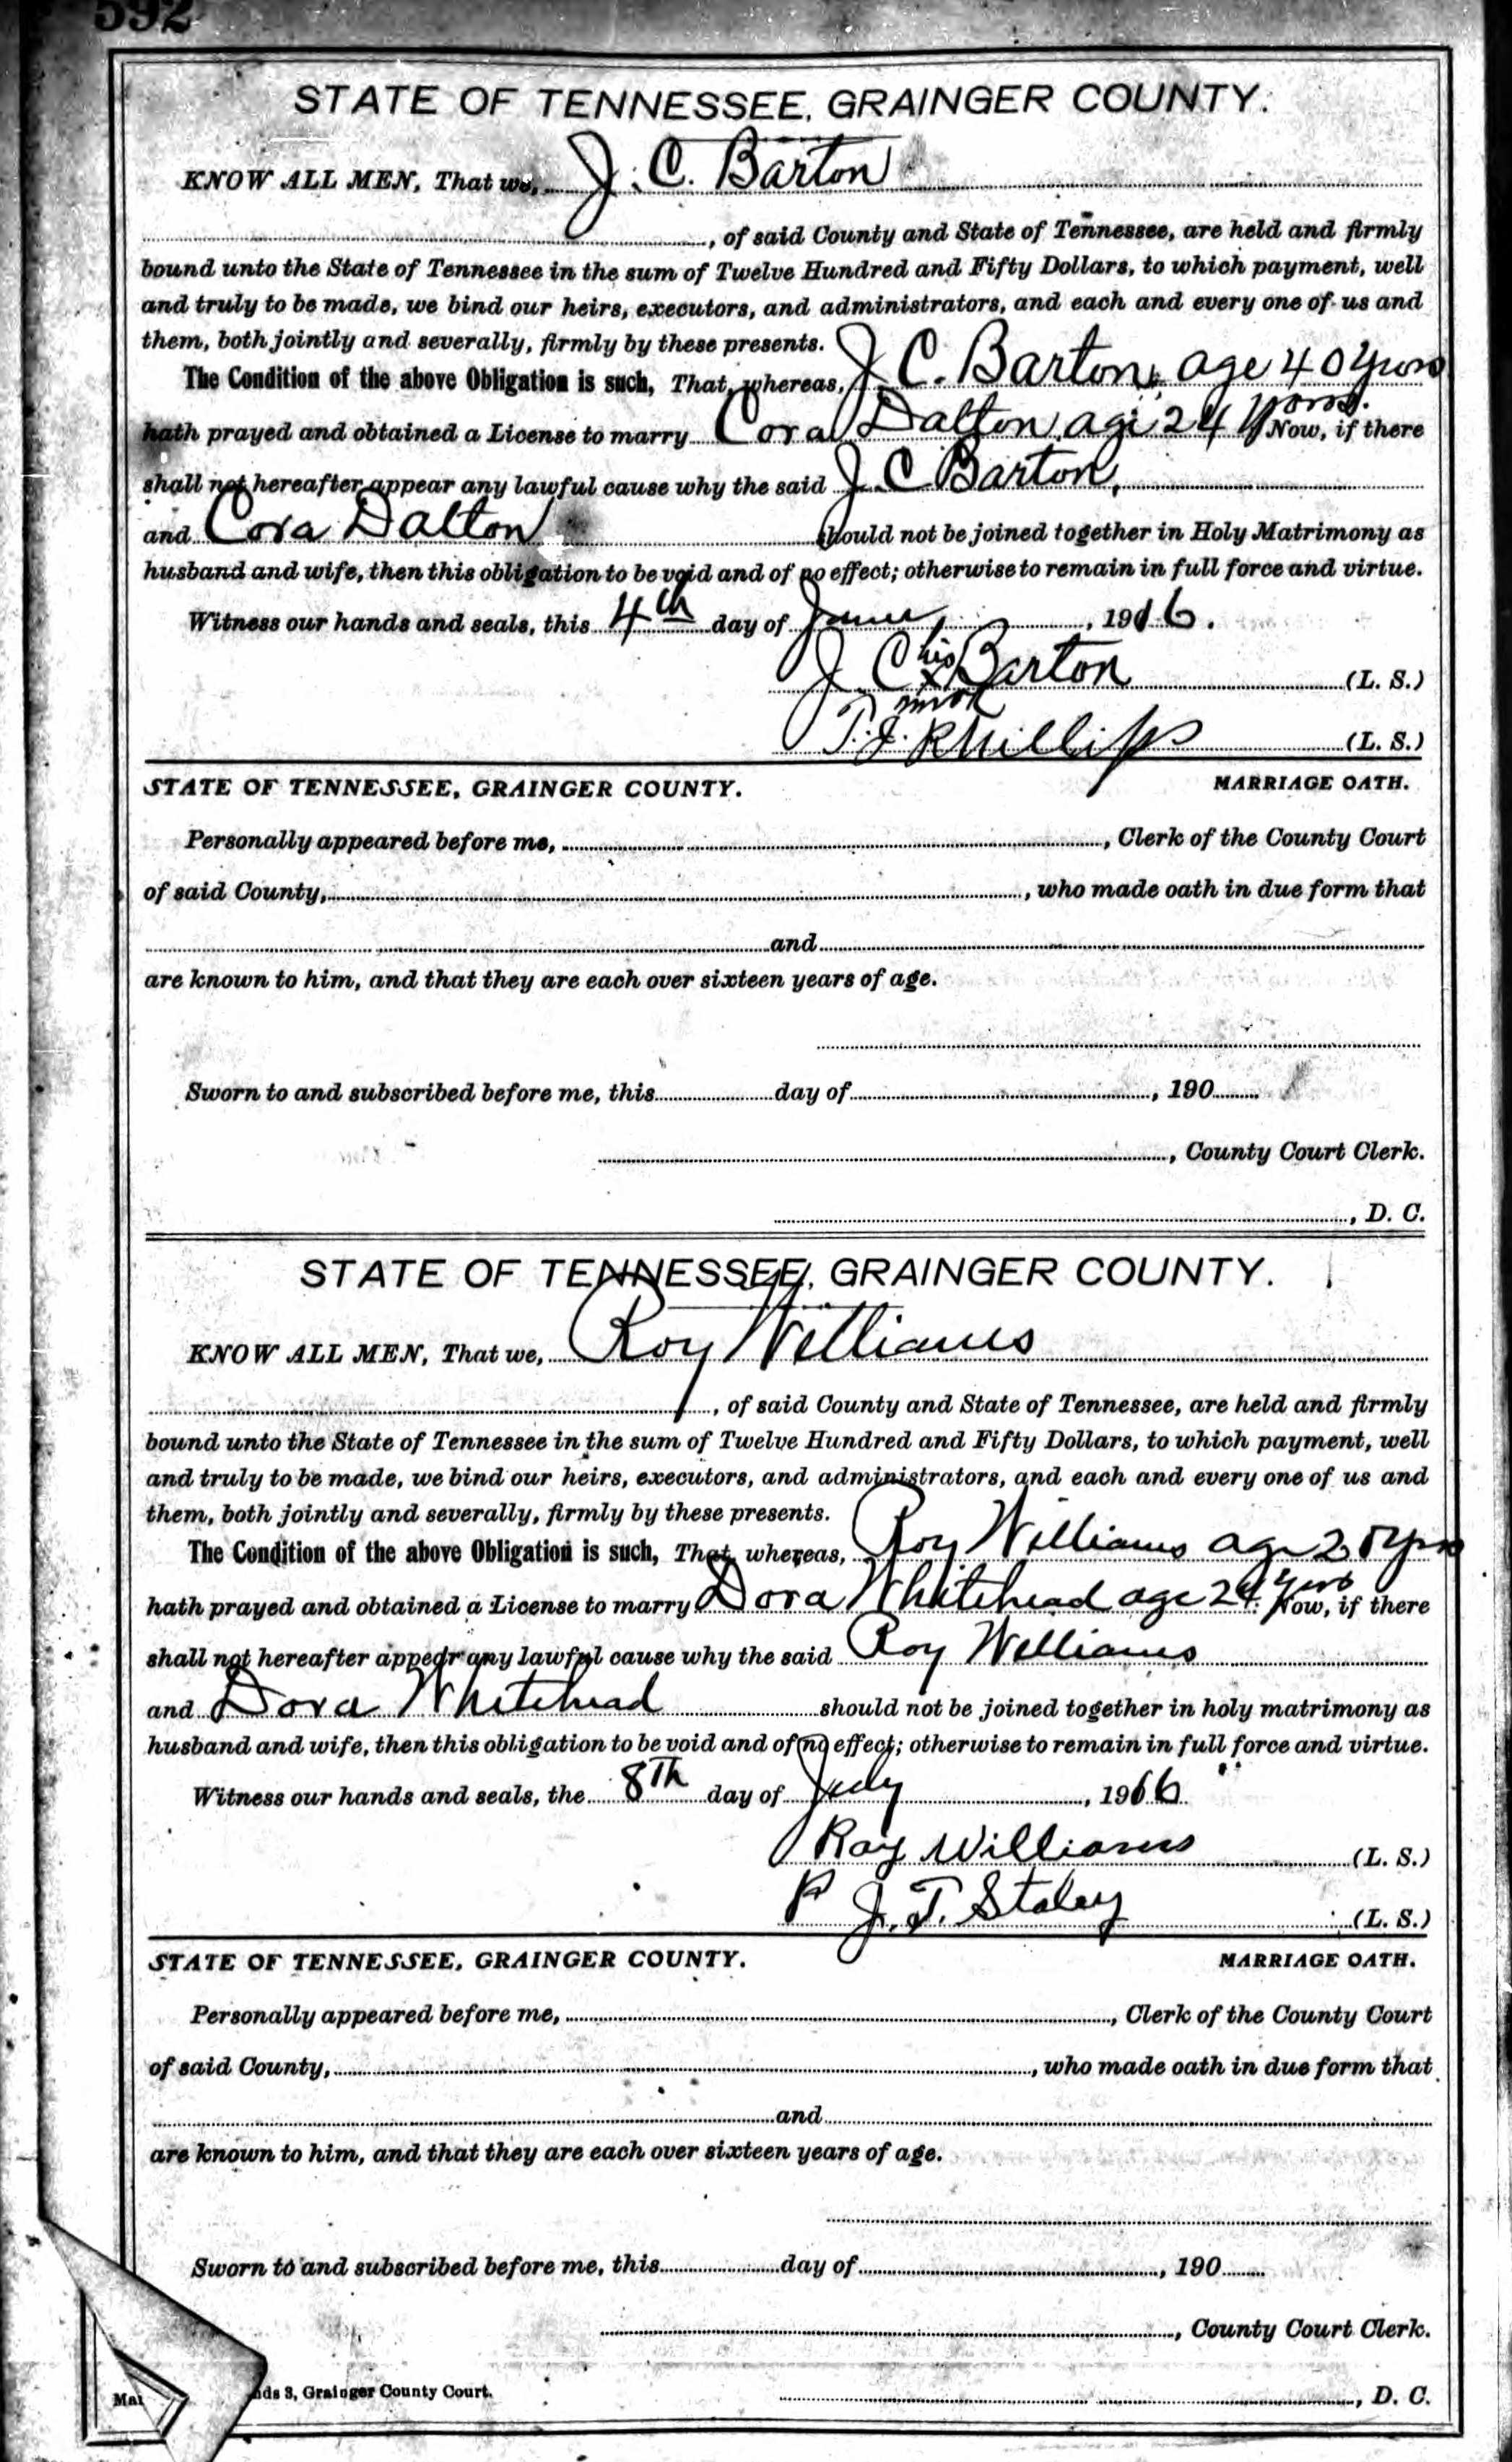 592
STATE OF TENNESSEE, GRAINGER COUNTY.
KNOW ALL MEN, That we, J. C. Barton
, of said County and State of Tennessee, are held and firmly
bound unto the State of Tennessee in the sum of Twelve Hundred and Fifty Dollars, to which payment, well
and truly to be made, we bind our heirs, executors, and administrators, and each and every one of us and
them, both jointly and severally, firmly by these presents.
The Condition of the above Obligation is such, That, whereas, J C. Barton, age 40 years
hath prayed and obtained a License to marry Cora Dalton, age 24 years. Now, if there
shall not hereafter appear any lawful cause why the said J. C Barton,
and Cora Dalton should not be joined together in Holy Matrimony as
husband and wife, then this obligation to be void and of no effect; otherwise to remain in full force and virtue.
Witness our hands and seals, this 4th day of , 1916.
J C his x mark Barton (L. S.)
T. J. Phillips (L. S.)
STATE OF TENNESSEE, GRAINGER COUNTY. MARRIAGE OATH.
Personally appeared before me, , Clerk of the County Court
of said County, , who made oath in due form that
and
are known to him, and that they are each over sixteen years of age.
Sworn to and subscribed before me, this day of , 190
, County Court Clerk.
, D. C.
STATE OF TENNESSEE, GRAINGER COUNTY.
KNOW ALL MEN, That we, Roy Williams
, of said County and State of Tennessee, are held and firmly
bound unto the State of Tennessee in the sum of Twelve Hundred and Fifty Dollars, to which payment, well
and truly to be made, we bind our heirs, executors, and administrators, and each and every one of us and
them, both jointly and severally, firmly by these presents.
The Condition of the above Obligation is such, That, whereas, Roy Williams age yrs
hath prayed and obtained a License to marry Dora Whitehead age 24 years Now, if there
shall not hereafter appear any lawful cause why the said Roy Williams
and Dora Whitehead should not be joined together in holy matrimony as
husband and wife, then this obligation to be void and of no effect; otherwise to remain in full force and virtue.
Witness our hands and seals, the 8th day of July , 1916
Roy Williams (L. S.)
J. T. Staley (L. S.)
STATE OF TENNESSEE, GRAINGER COUNTY. MARRIAGE OATH.
Personally appeared before me, , Clerk of the County Court
of said County, , who made oath in due form that
and
are known to him, and that they are each over sixteen years of age.
Sworn to and subscribed before me, this day of , 190
, County Court Clerk.
Mar nds 3, Grainger County Court. , D. C.